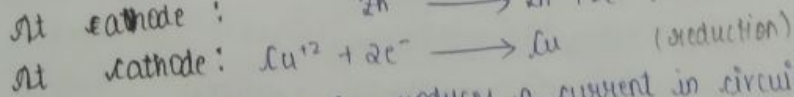 At cathode : Zn ⟶
At cathode : Cu⁺² + 2e⁻ ⟶ Cu (reduction)
a current in circui